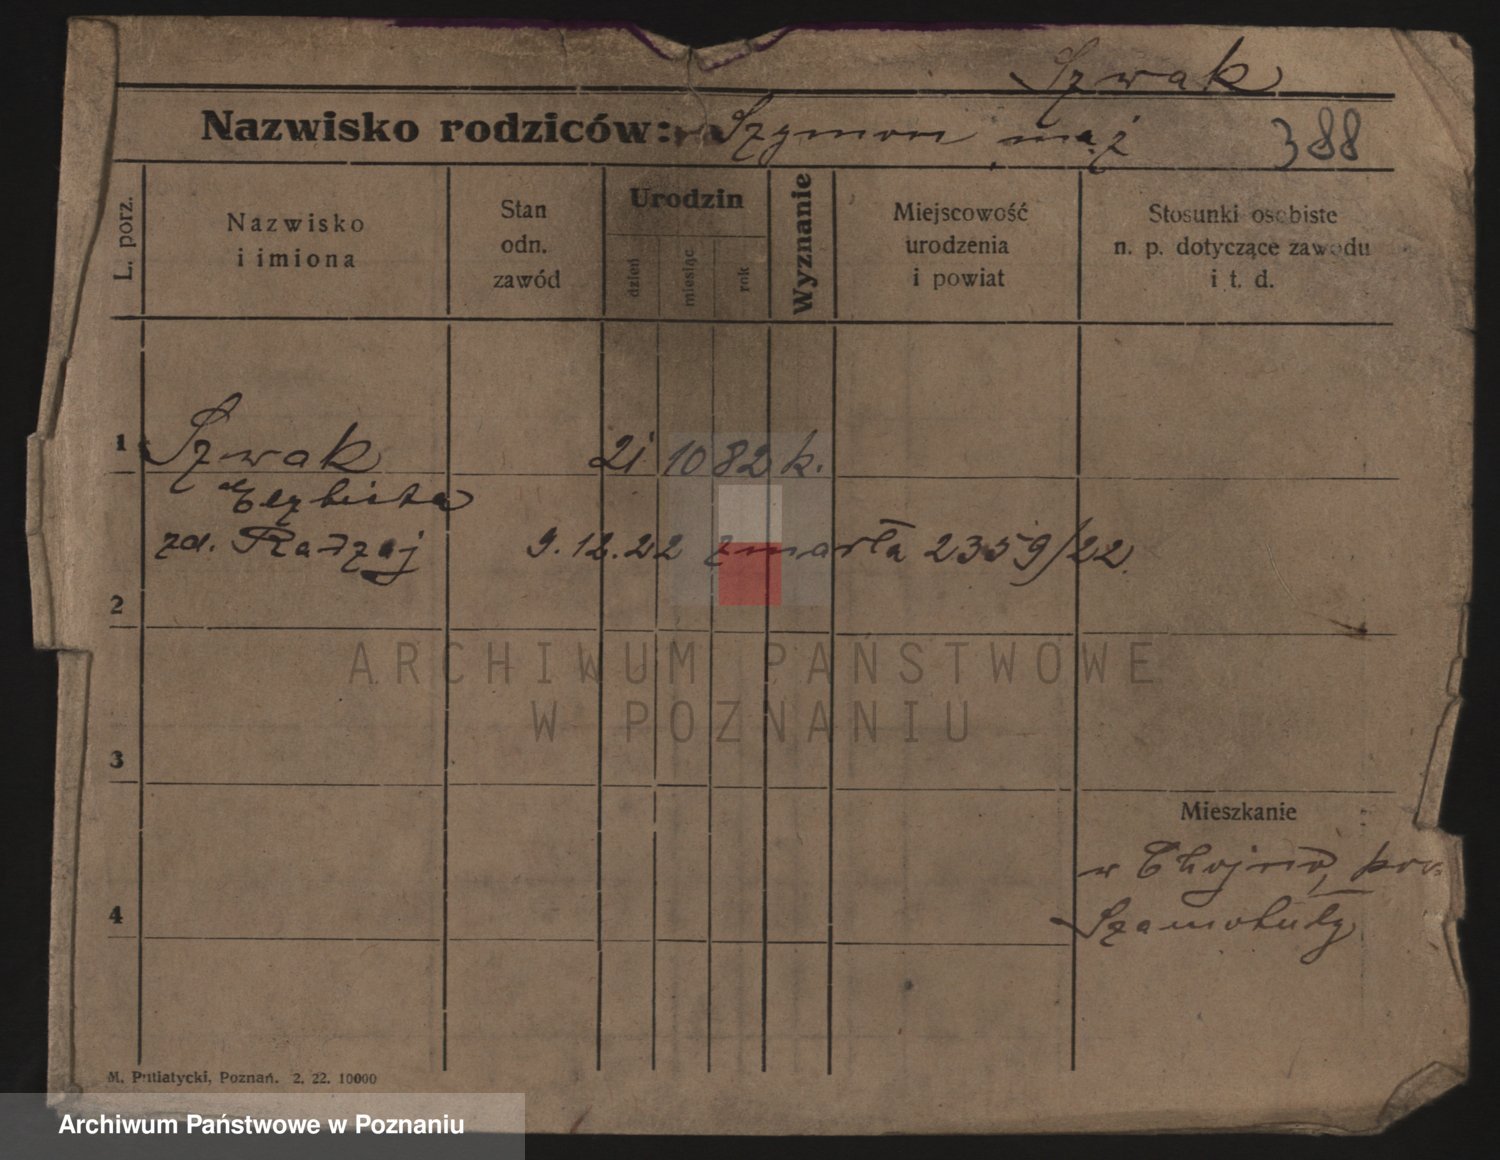 Szwak
Nazwisko rodziców: Szymon mąż 388
L. porz.
Nazwisko
i imiona
Stan
odn.
zawód
Urodzin
dzień
miesiąc
rok
Wyznanie
Miejscowość
urodzenia
i powiat
Stosunki osobiste
n. p. dotyczące zawodu
i t. d.
1 Szwak 21 10 82 k.
Elżbieta
zd. Radzej 9.12.22 zmarła 2359/22
2
ARCHIWUM PAŃSTWOWE
W POZNANIU
3
Mieszkanie
w Chojno, pow.
4 Szamotuły
M. Putiatycki, Poznań. 2. 22. 10000
Archiwum Państwowe w Poznaniu